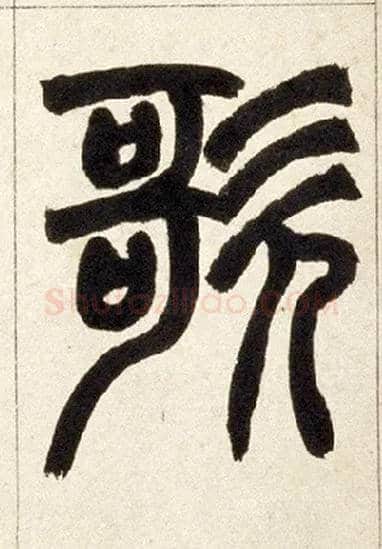 歌
Shufaziliao.COM